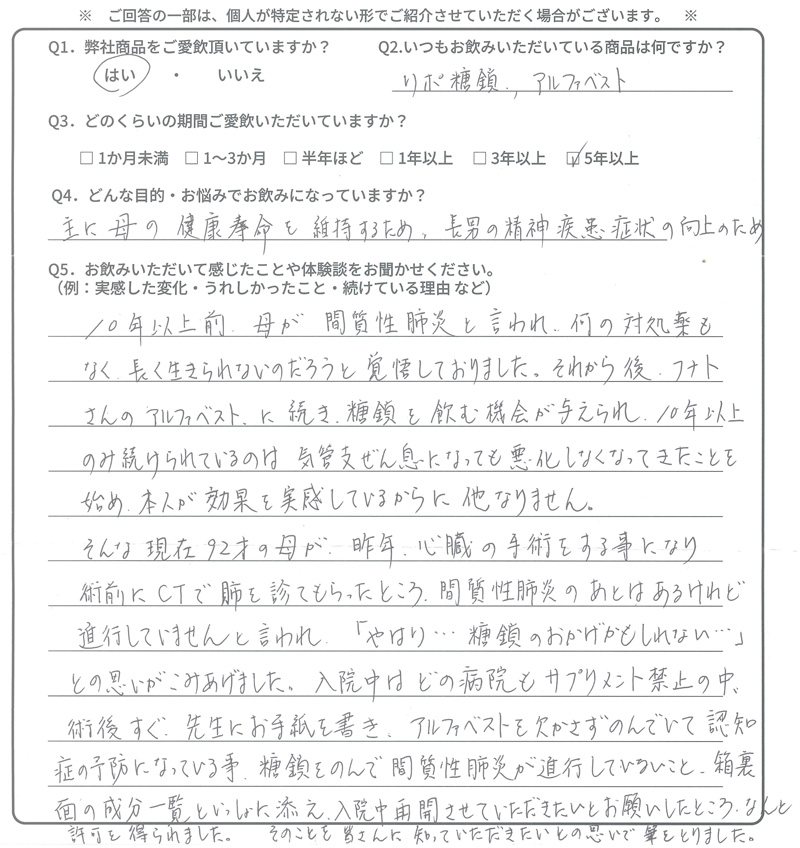 ※ ご回答の一部は、個人が特定されない形でご紹介させていただく場合がございます。 ※
Q1．弊社商品をご愛飲頂いていますか？
はい ・ いいえ
Q2.いつもお飲みいただいている商品は何ですか？
リポ糖鎖、アルファベスト
Q3．どのくらいの期間ご愛飲いただいていますか？
□ 1か月未満 □ 1〜3か月 □ 半年ほど □ 1年以上 □ 3年以上 ☑ 5年以上
Q4．どんな目的・お悩みでお飲みになっていますか？
主に母の健康寿命を維持するため、長男の精神疾患症状の向上のため
Q5．お飲みいただいて感じたことや体験談をお聞かせください。
（例：実感した変化・うれしかったこと・続けている理由 など）
10年以上前、母が間質性肺炎と言われ、何の対処薬も
なく、長く生きられないのだろうと覚悟しておりました。それから後、フナト
さんのアルファベスト、に続き、糖鎖を飲む機会が与えられ、10年以上
のみ続けられているのは気管支ぜん息になっても悪化しなくなってきたことを
始め、本人が効果を実感しているからに他なりません。
そんな現在92才の母が、昨年、心臓の手術をする事になり
術前にCTで肺を診てもらったところ、間質性肺炎のあとはあるけれど
進行していませんと言われ、「やはり…糖鎖のおかげかもしれない…」
との思いがこみあげました。入院中はどの病院もサプリメント禁止の中、
術後すぐ、先生にお手紙を書き、アルファベストを欠かさずのんでいて認知
症の予防になっている事、糖鎖をのんで間質性肺炎が進行していないこと、箱裏
面の成分一覧といっしょに添え、入院中再開させていただきたいとお願いしたところ、なんと
許可を得られました。 そのことを皆さんに知っていただきたいとの思いで筆をとりました。